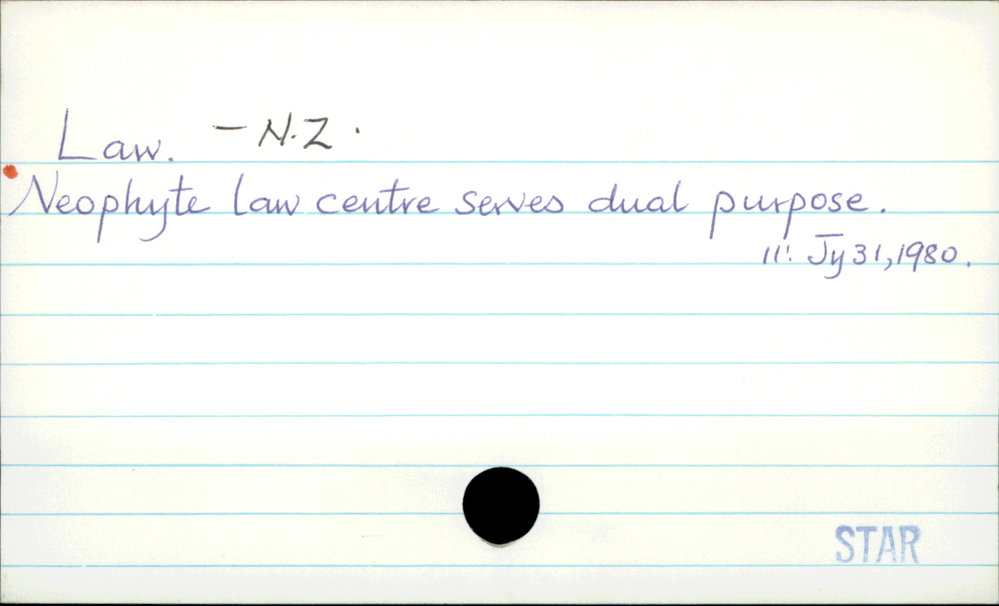 Law. - N.Z.
Neophyte law centre serves dual purpose.
11: Jy 31, 1980.
STAR